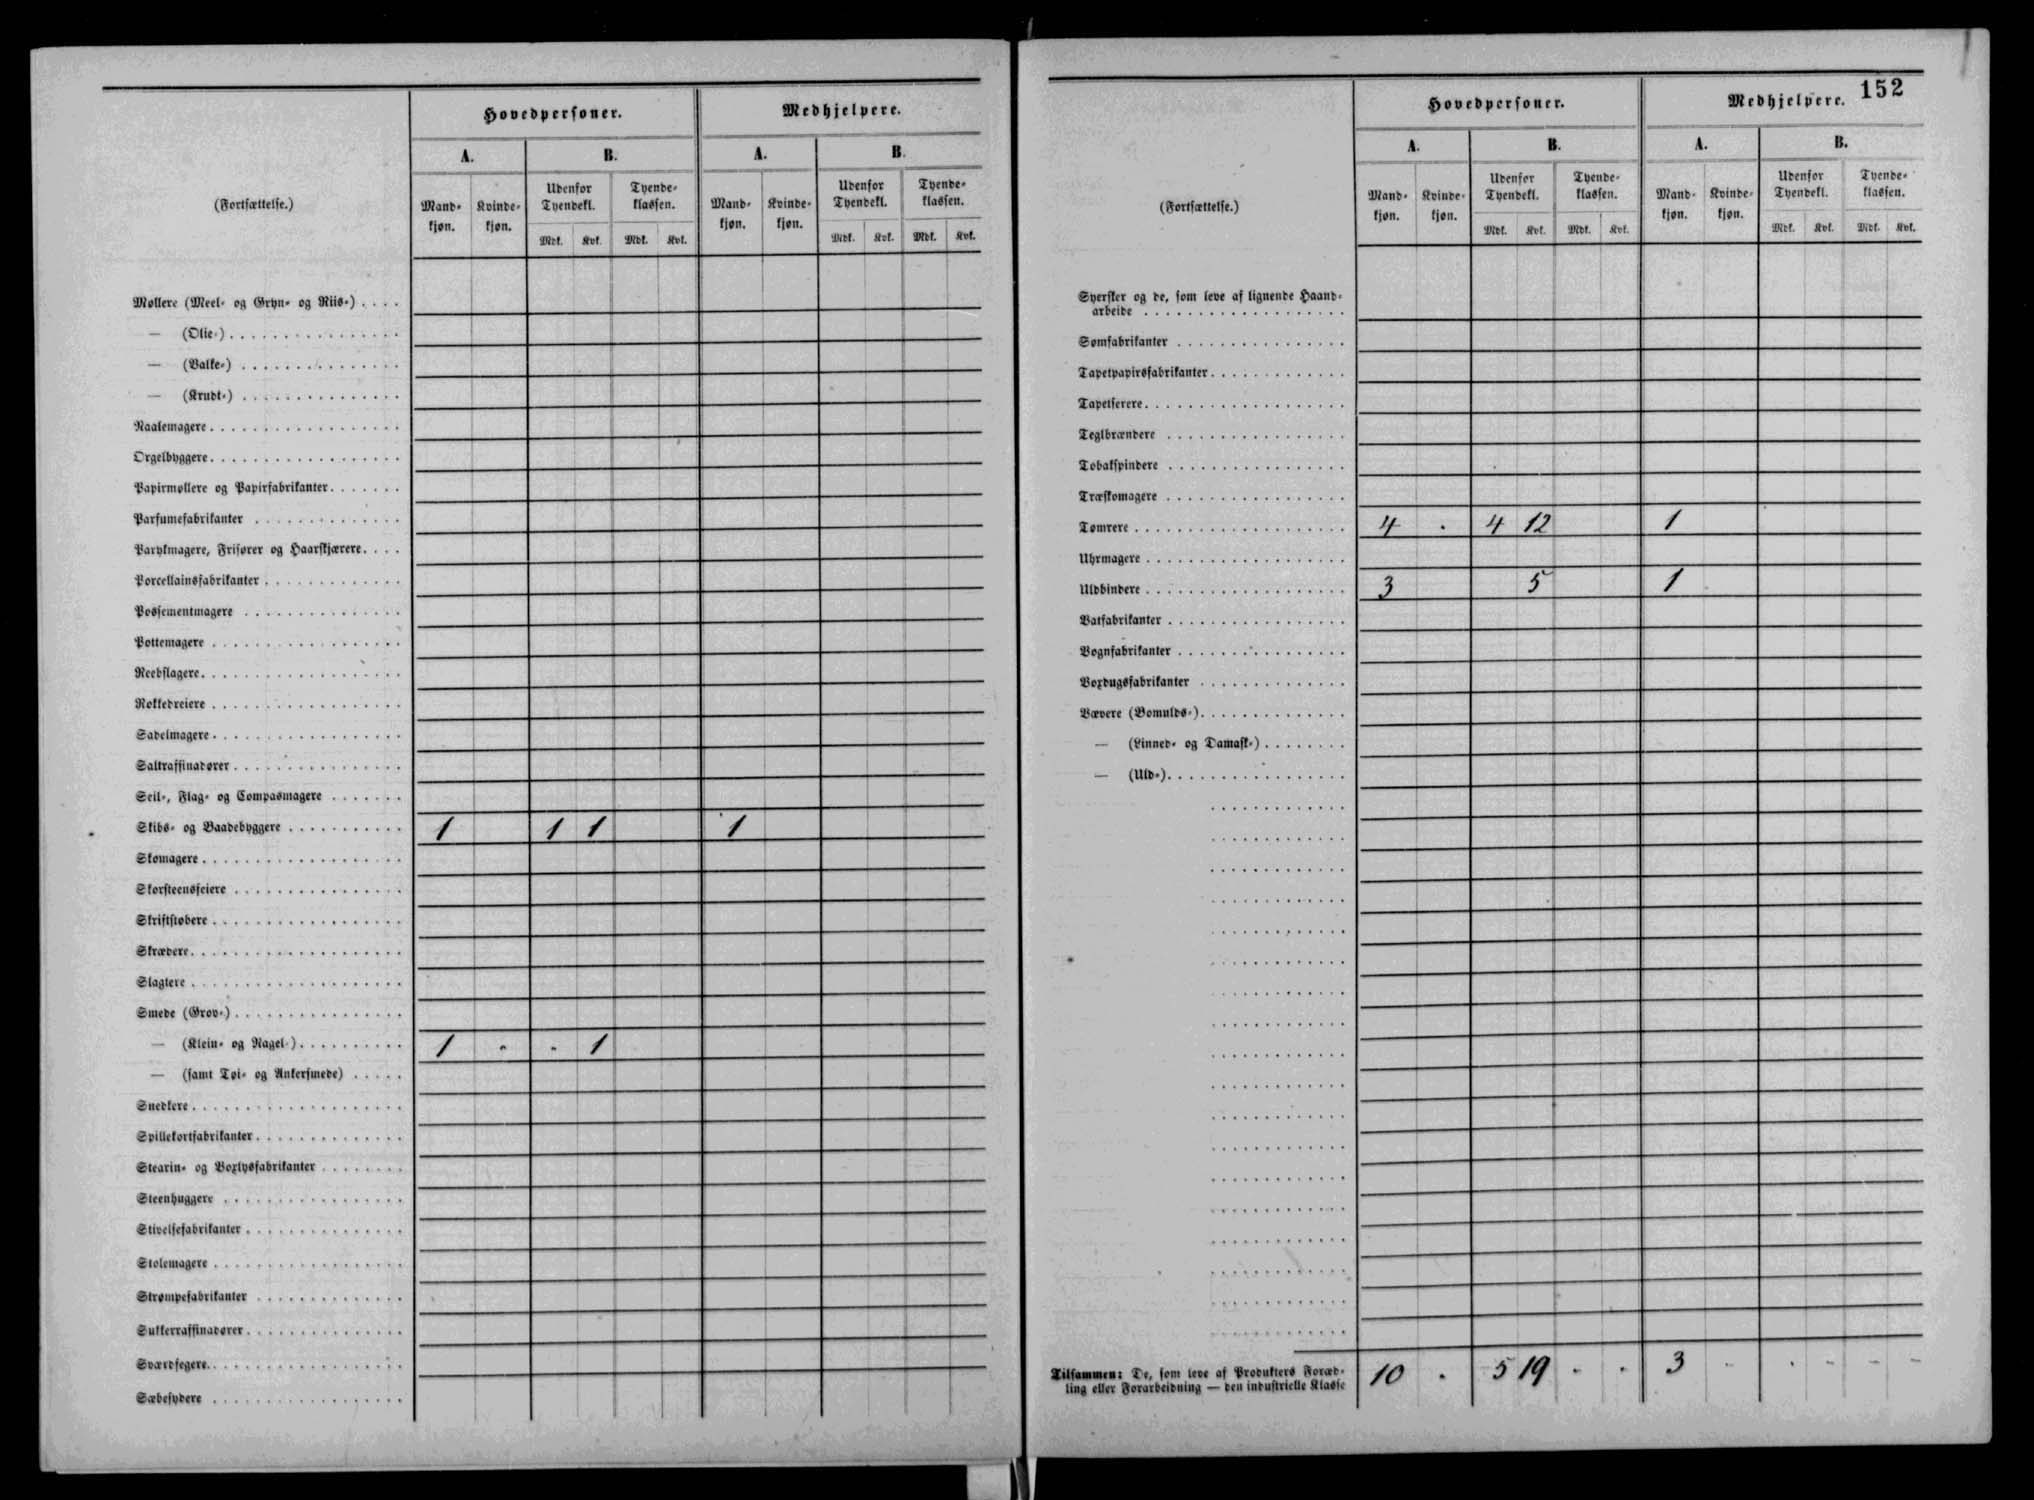 Hovedpersoner. Medhjelpere.
A. B. A. B.
(Fortsættelse.)
Mand-kjøn. Kvinde-kjøn. Udenfor Tyendekl. Tyende-klassen. Mand-kjøn. Kvinde-kjøn. Udenfor Tyendekl. Tyende-klassen.
Mdk. Kvk. Mdk. Kvk. Mdk. Kvk. Mdk. Kvk.
Møllere (Meel- og Gryn- og Riis-) . . . .
— (Olie-) . . . .
— (Valke-) . . . .
— (Krudt-) . . . .
Naalemagere . . . .
Orgelbyggere . . . .
Papirmøllere og Papirfabrikanter . . . .
Parfumefabrikanter . . . .
Parykmagere, Frisører og Haarskjærere . . . .
Porcellainsfabrikanter . . . .
Possementmagere . . . .
Pottemagere . . . .
Reebslagere . . . .
Rokkedreiere . . . .
Sadelmagere . . . .
Saltraffinadører . . . .
Seil-, Flag- og Compasmagere . . . .
Skibs- og Baadebyggere . . . . 1 1 1 1
Skomagere . . . .
Skorsteensfeiere . . . .
Skriftstøbere . . . .
Skrædere . . . .
Slagtere . . . .
Smede (Grov-) . . . .
— (Klein- og Nagel-) . . . . 1 " " 1
— (samt Tøi- og Ankersmede) . . . .
Snedkere . . . .
Spillekortfabrikanter . . . .
Stearin- og Voxlysfabrikanter . . . .
Steenhuggere . . . .
Stivelsefabrikanter . . . .
Stolemagere . . . .
Strømpefabrikanter . . . .
Sukkerraffinadører . . . .
Sværdfegere . . . .
Sæbesydere . . . .
152
Hovedpersoner. Medhjelpere.
A. B. A. B.
(Fortsættelse.)
Mand-kjøn. Kvinde-kjøn. Udenfor Tyendekl. Tyende-klassen. Mand-kjøn. Kvinde-kjøn. Udenfor Tyendekl. Tyende-klassen.
Mdk. Kvk. Mdk. Kvk. Mdk. Kvk. Mdk. Kvk.
Syersker og de, som leve af lignende Haand-
arbeide . . . .
Sømfabrikanter . . . .
Tapetpapirsfabrikanter . . . .
Tapetserere . . . .
Teglbrændere . . . .
Tobakspindere . . . .
Træskomagere . . . .
Tømrere . . . . 4 . 4 12 1
Uhrmagere . . . .
Uldbindere . . . . 3 5 1
Vatfabrikanter . . . .
Vognfabrikanter . . . .
Voxdugsfabrikanter . . . .
Vævere (Bomulds-) . . . .
— (Linned- og Damask-) . . . .
— (Uld-) . . . .
Tilsammen: De, som leve af Produkters Foræd-
ling eller Forarbeidning — den industrielle Klasse 10 . 5 19 . . 3 - . - - -